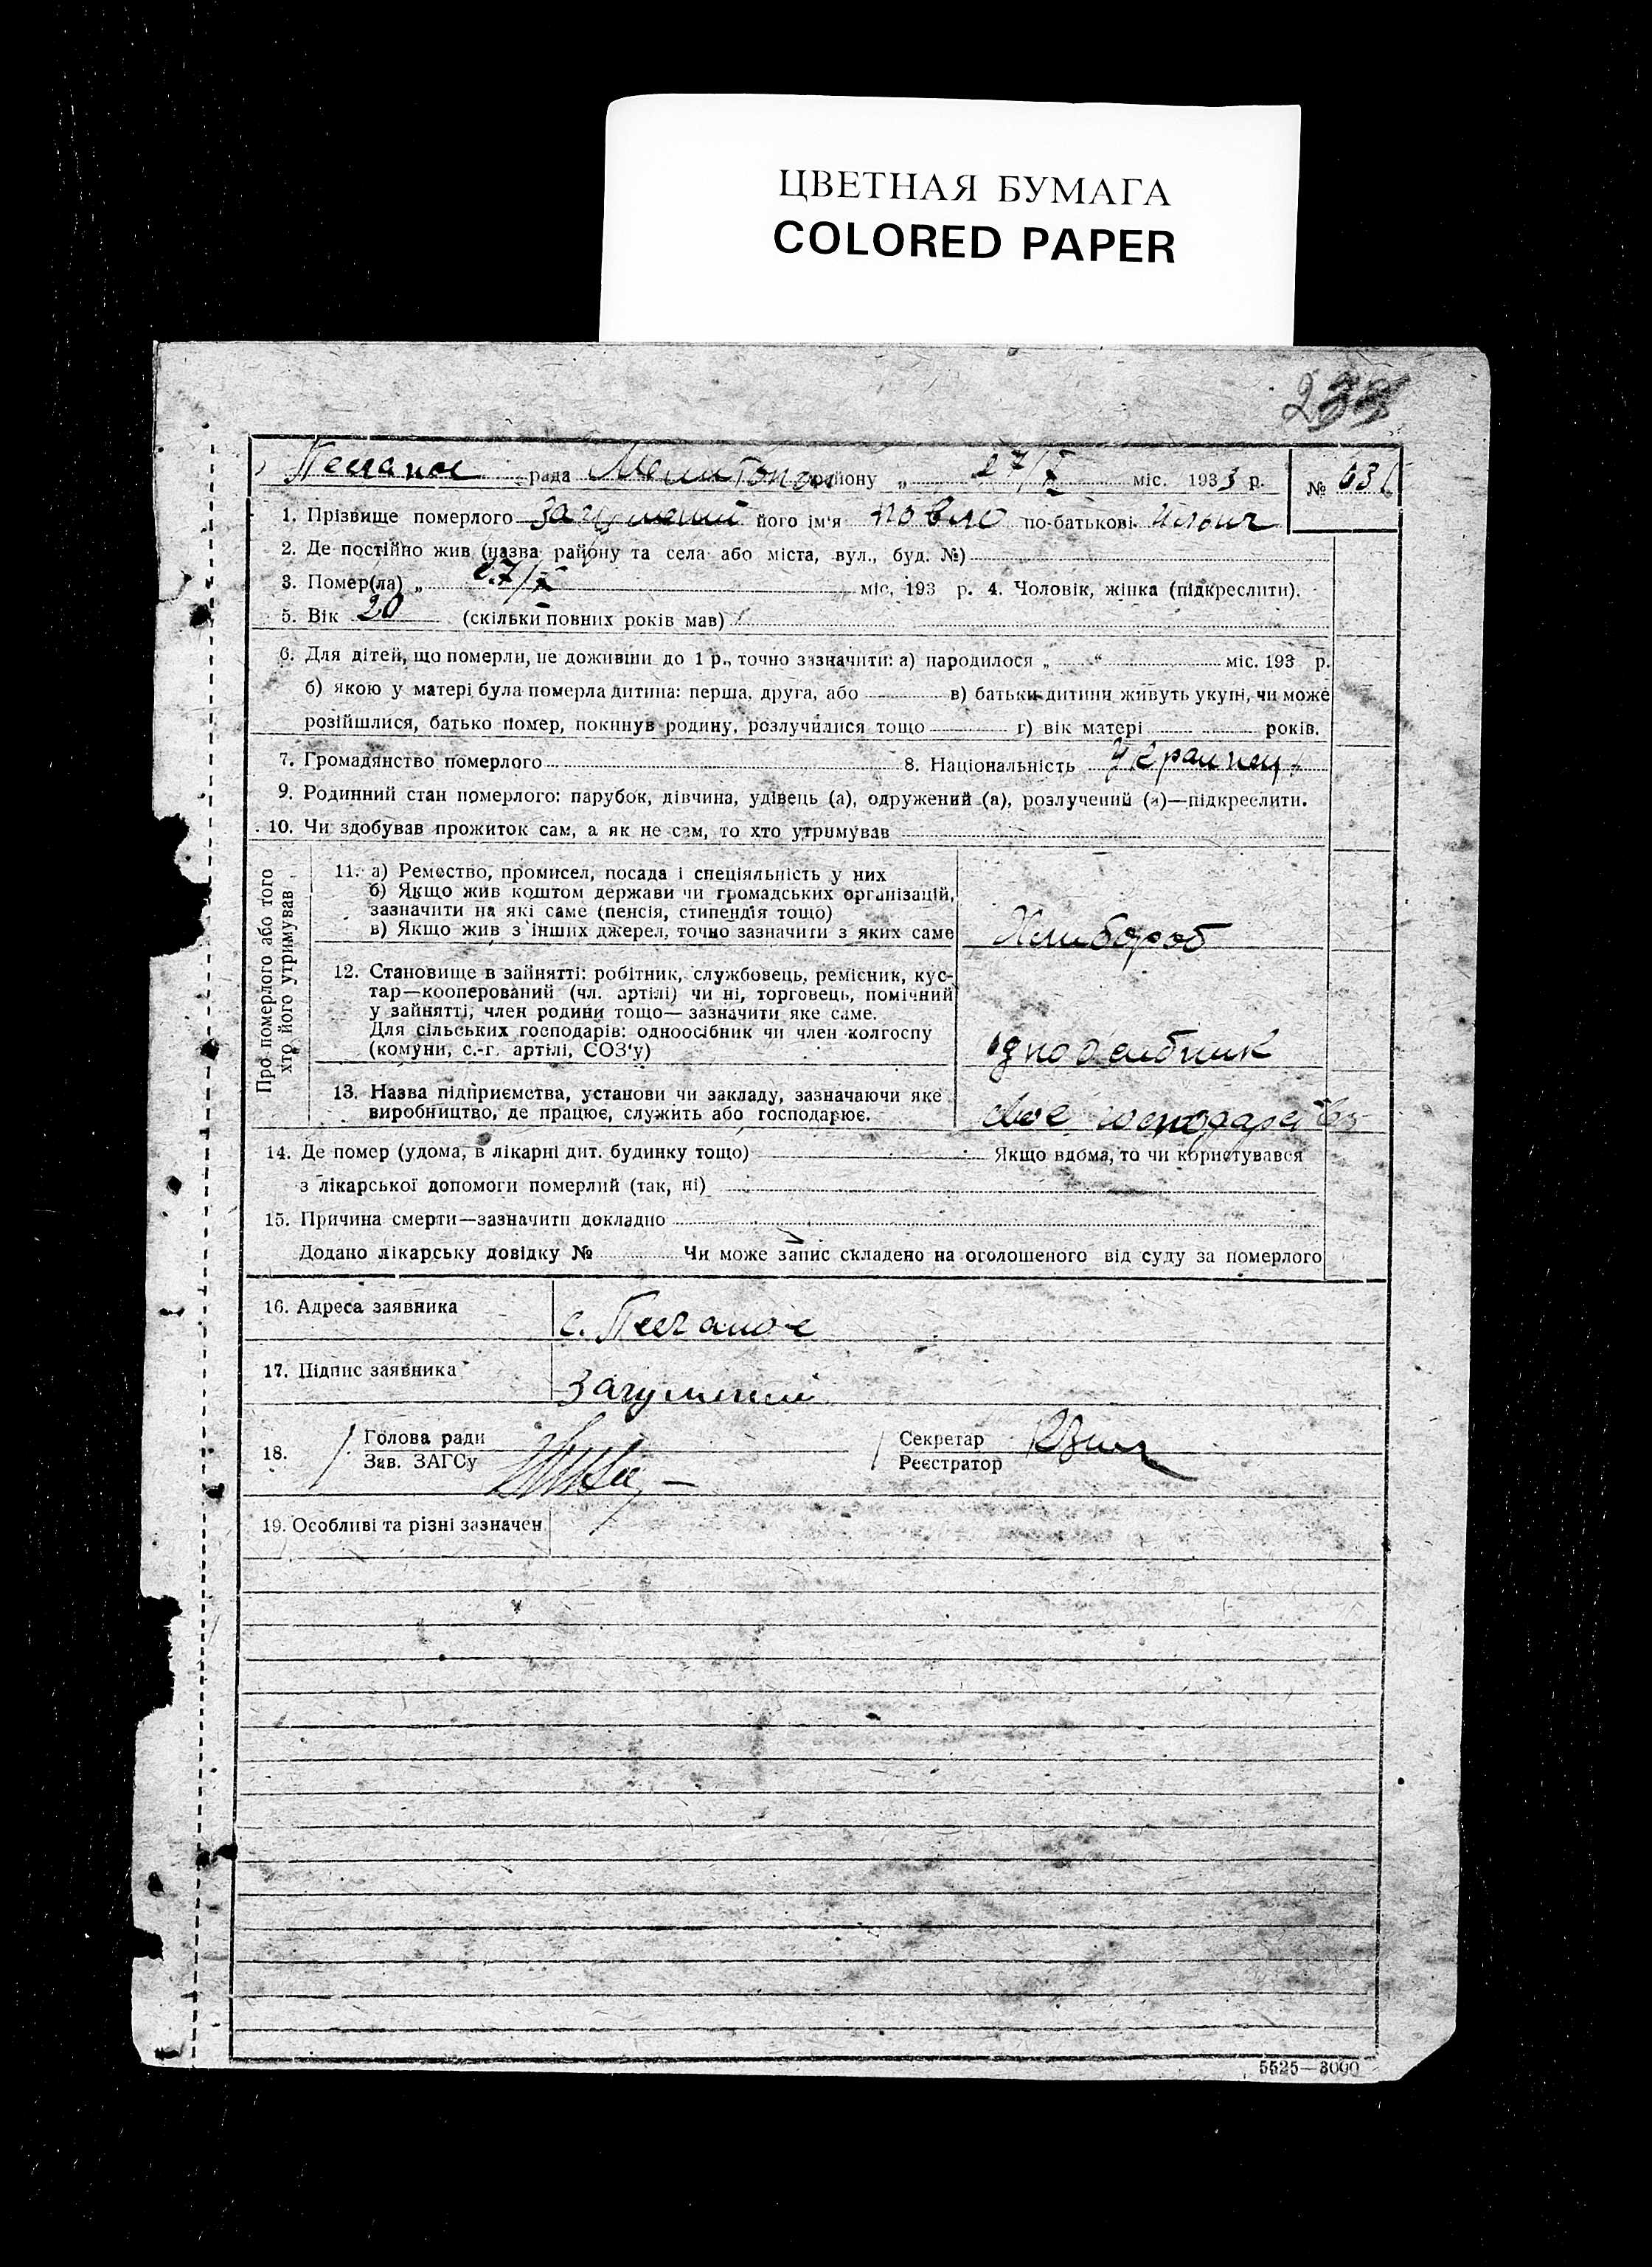 ЦВЕТНАЯ БУМАГА
COLORED PAPER
233
Песчаное рада Мелитопол району „ 27/X міс. 1933 р. №
1. Прізвище померлого Загумений його ім'я Павло по-батькові Ильич
2. Де постійно жив (назва району та села або міста, вул., буд. №)
3. Помер(ла) „ 27/X міс, 193 р. 4. Чоловік, жінка (підкреслити).
5. Вік 20 (скільки повних років мав)
6. Для дітей, що померли, не доживши до 1 р., точно зазначити: а) народилося „ “ міс. 193 р.
б) якою у матері була померла дитина: перша, друга, або в) батьки дитини живуть укупі, чи може
розійшлися, батько помер, покинув родину, розлучилися тощо г) вік матері років.
7. Громадянство померлого 8. Національність Украинец
9. Родинний стан померлого: парубок, дівчина, удівець (а), одружений (а), розлучений (а)—підкреслити.
10. Чи здобував прожиток сам, а як не сам, то хто утримував
Про померлого або того
хто його утримував
11. а) Ремество, промисел, посада і спеціяльність у них
б) Якщо жив коштом держави чи громадських організацій,
зазначити на які саме (пенсія, стипендія тощо)
в) Якщо жив з інших джерел, точно зазначити з яких саме
Хлибороб
12. Становище в зайнятті: робітник, службовець, ремісник, кус-
тар—кооперований (чл. артілі) чи ні, торговець, помічний
у зайнятті, член родини тощо— зазначити яке саме.
Для сільських господарів: одноосібник чи член колгоспу
(комуни, с.-г. артілі, СОЗ'у)
одноосибник
13. Назва підприємства, установи чи закладу, зазначаючи яке
виробництво, де працює, служить або господарює.
свое господарство
14. Де помер (удома, в лікарні дит. будинку тощо) Якщо вдома, то чи користувався
з лікарської допомоги померлий (так, ні)
15. Причина смерти—зазначити докладно
Додано лікарську довідку № Чи може запис складено на оголошеного від суду за померлого
16. Адреса заявника с. Песчаное
17. Підпис заявника Загуменний
18. Голова ради Секретар
Зав. ЗАГСу Реєстратор
19. Особливі та різні зазначен
5525—3000